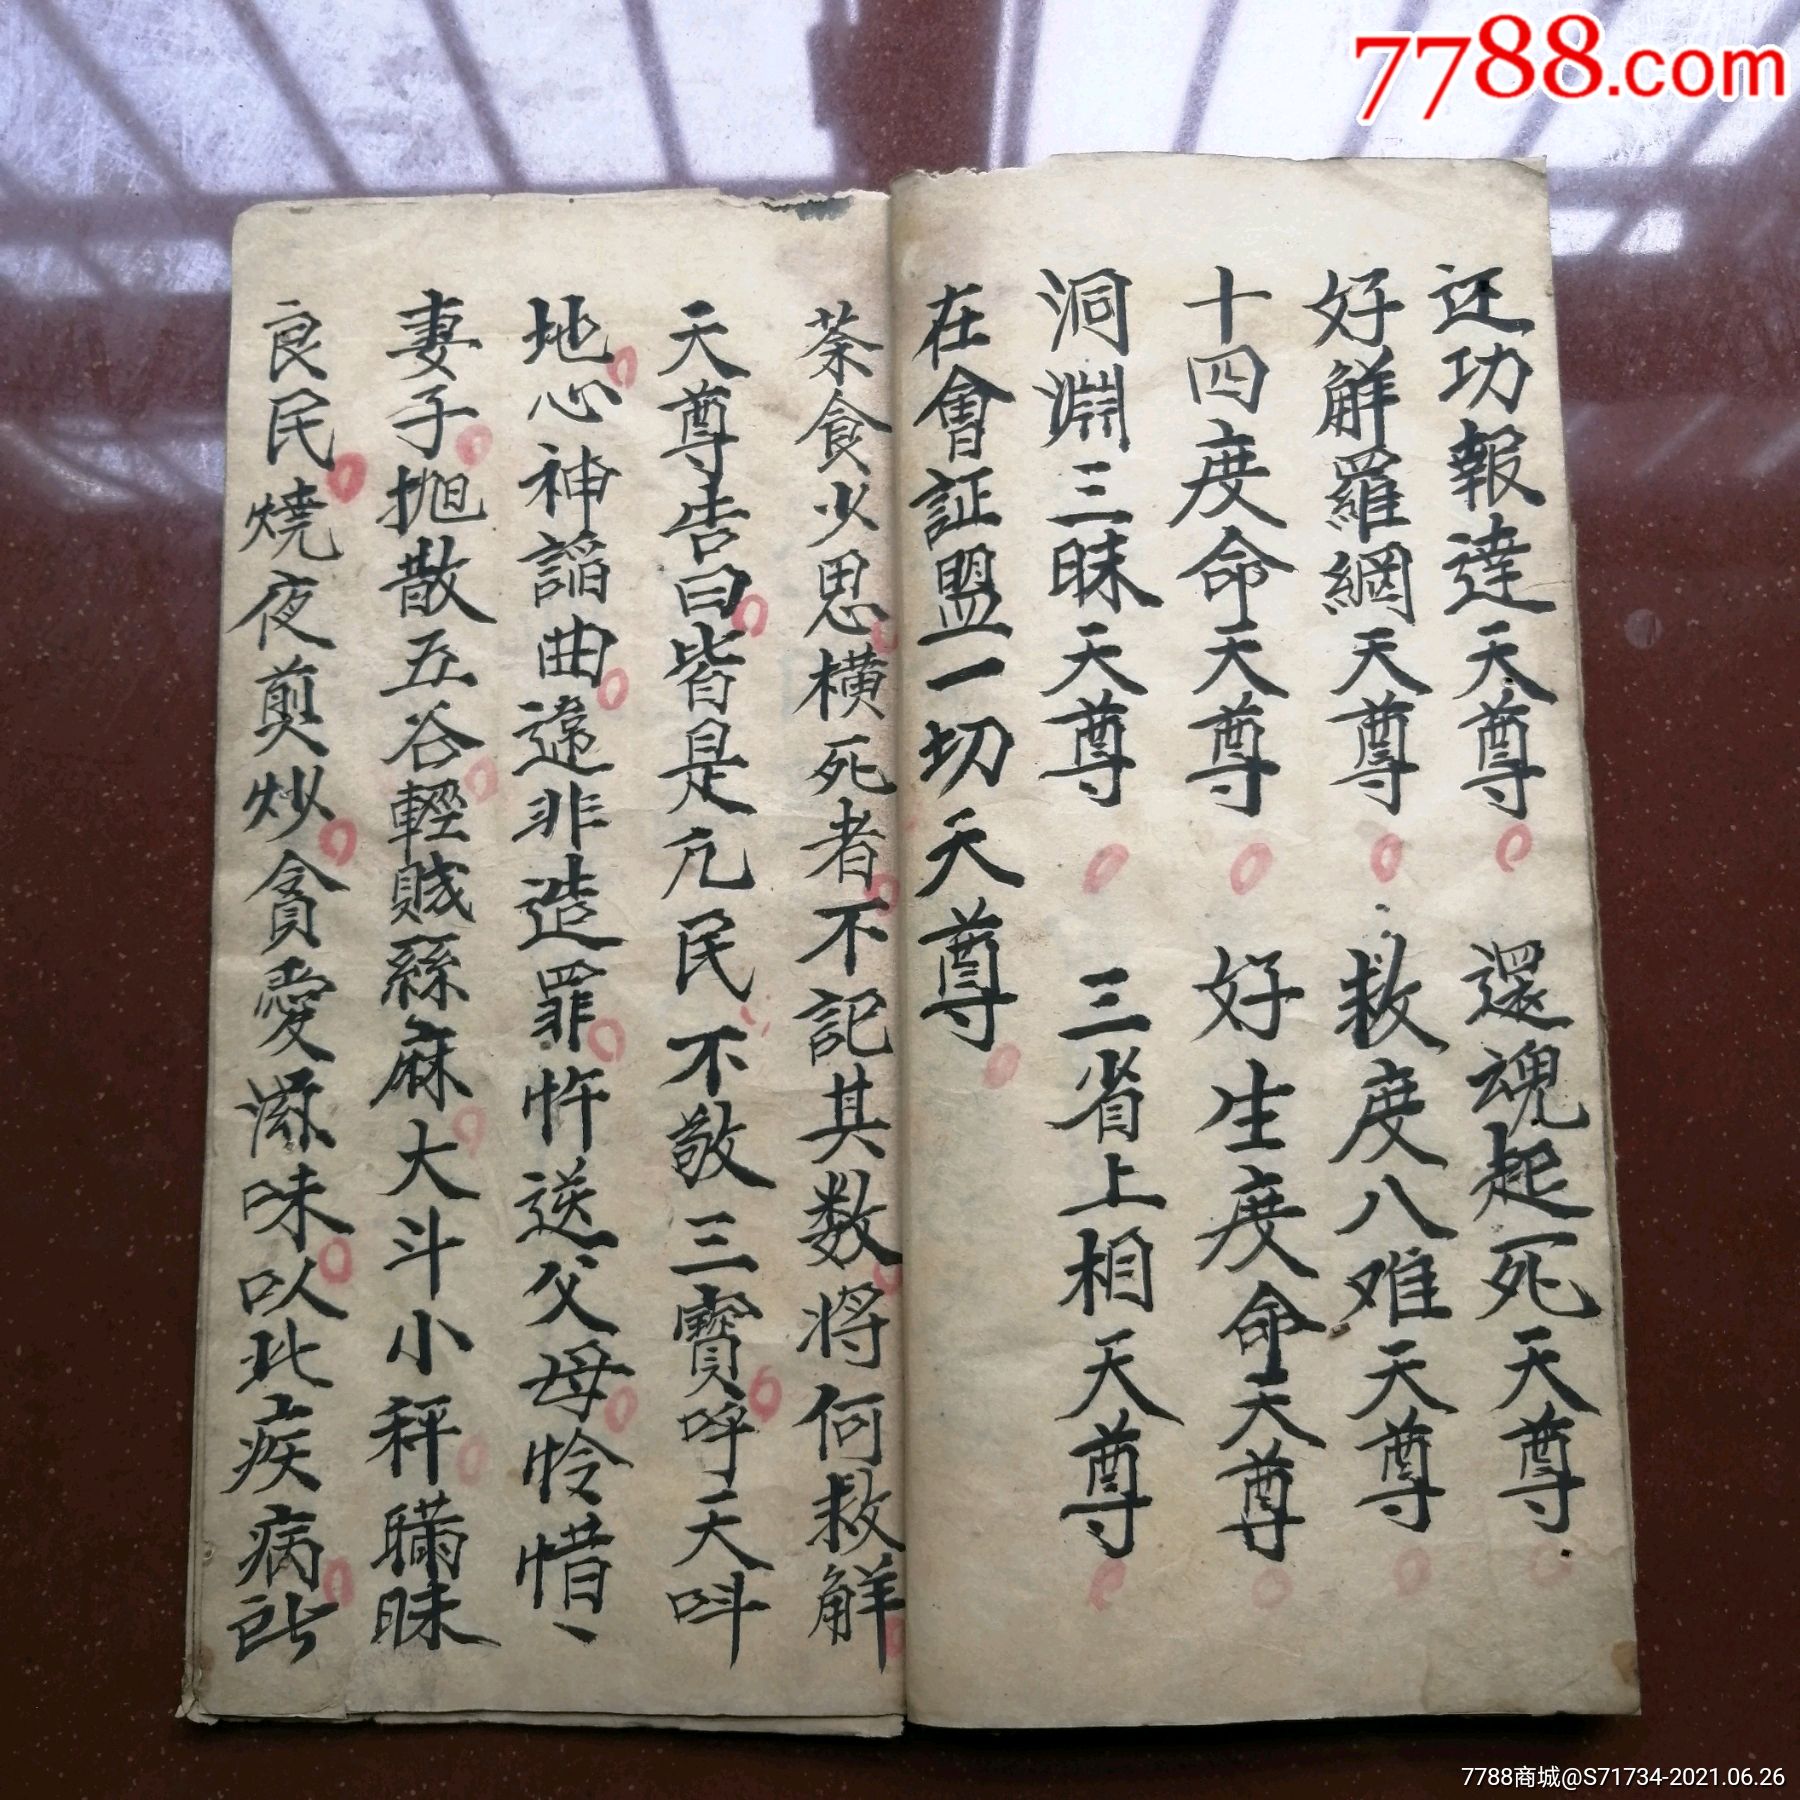 7788.com
迁功報達天尊 還魂起死天尊
好解羅網天尊 救度八难天尊
十四度命天尊 好生度命天尊
洞淵三昧天尊 三省上相天尊
在會証盟一切天尊
荼食火思横死者不記其数將何救解
天尊告曰皆是凡民不敬三寳呼天呌
地心神謟曲違非造罪忤送父母怜惜
妻子抛散五谷輕賎絲麻大斗小秤瞞昧
良民燒夜煎炒貪愛滋味以此疾病
7788商城@S71734-2021.06.26